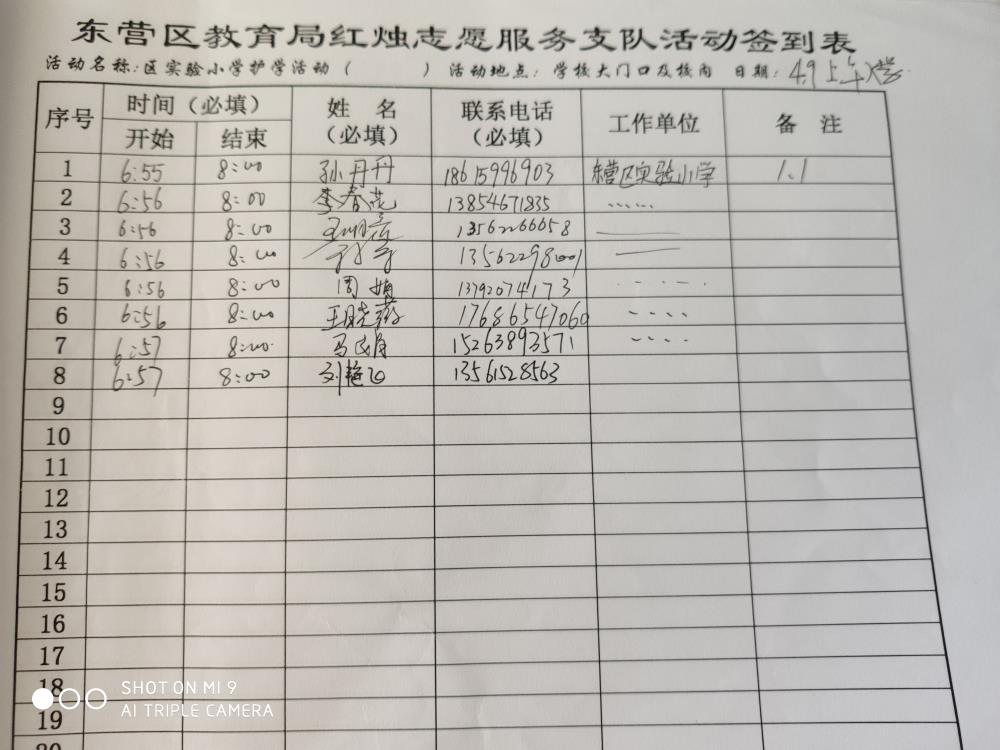 东营区教育局红烛志愿服务支队活动签到表
活动名称:区实验小学护学活动( ) 活动地点:学校大门口及校内 日期: 4.9 上午
序号 时间(必填) 姓名(必填) 联系电话(必填) 工作单位 备注
开始 结束
1 6:55 8:00 孙丹丹 18615996903 东营区实验小学 1.1
2 6:56 8:00 李春花 13854671835 ......
3 6:56 8:00 13562266658
4 6:56 8:00 13562298001
5 6:56 8:00 周娟 13792074173
6 6:56 8:00 王晓 17686547060
7 6:57 8:00 马 15263893571
8 6:57 8:00 刘艳 13561528563
9
10
11
12
13
14
15
16
17
18
19
20
SHOT ON MI 9
AI TRIPLE CAMERA